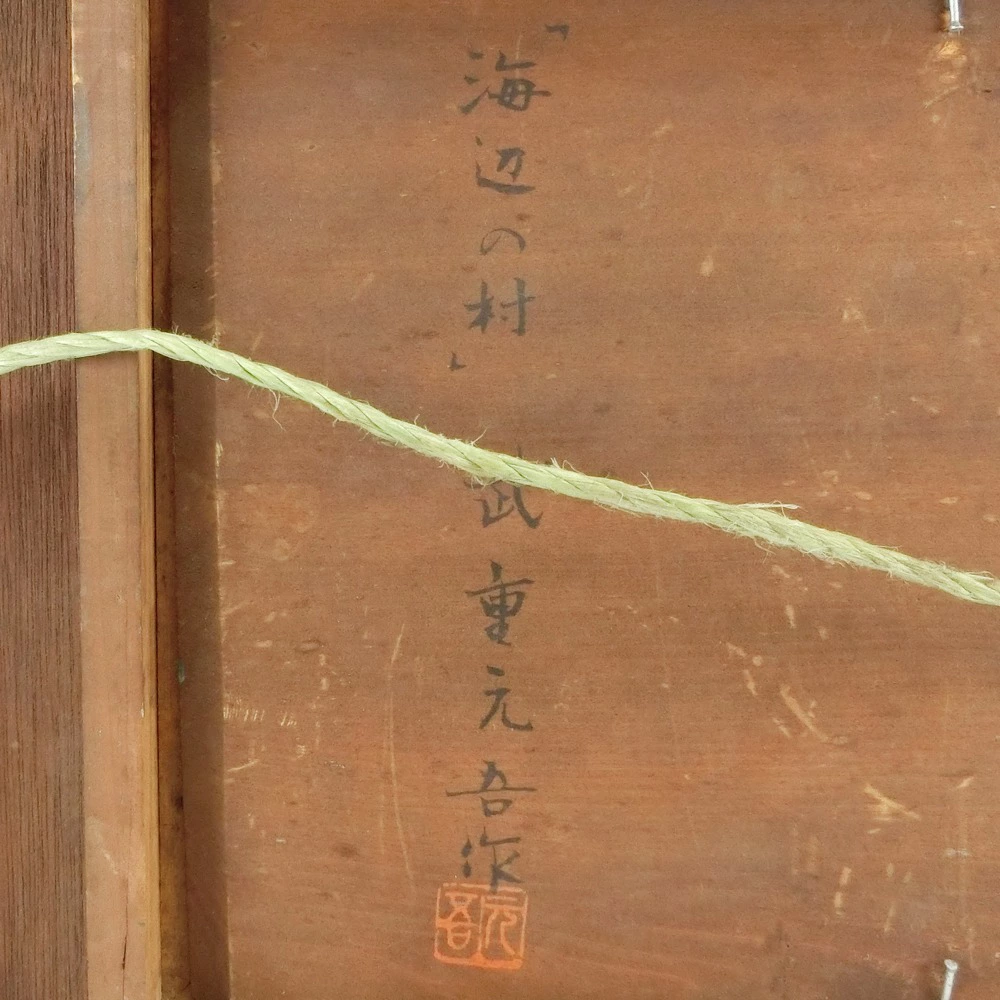 「海辺の村」 武重元吾作
元吾